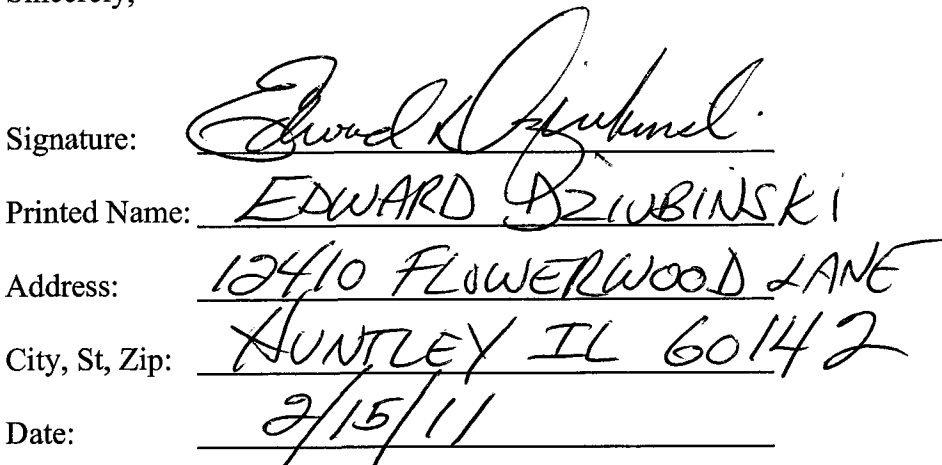 Sincerely,
Signature: Edward Dziubinski
Printed Name: EDWARD DZIUBINSKI
Address: 12410 FLOWERWOOD LANE
City, St, Zip: HUNTLEY IL 60142
Date: 2/15/11